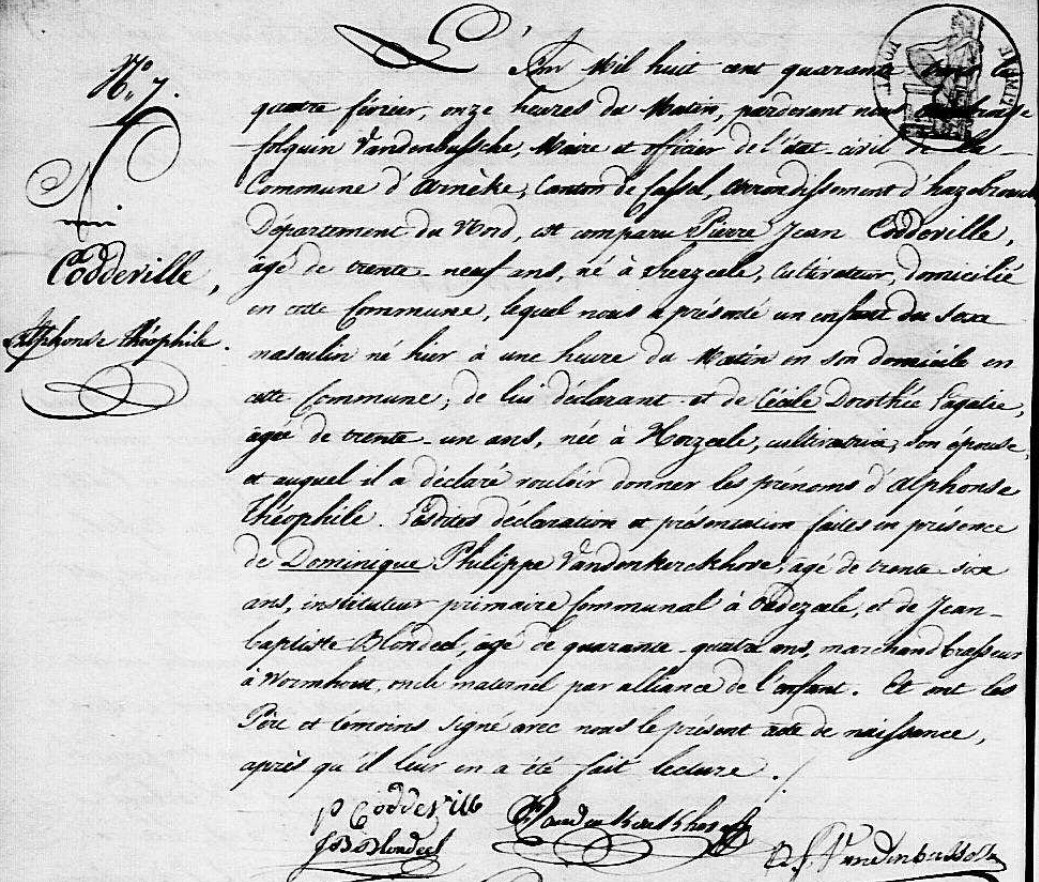 N.º 7.
Codderville,
Alphonse théophile.
L'An Mil huit cent quarante le
quatre février, onze heures du Matin, pardevant nous
folquin Vandenbussche, Maire et officier de l'état-civil de la
Commune d'Arnèke, Canton de Cassel, arrondissement d'hazebrouck
Département du Nord, est comparu Pierre Jean Codderville,
âgé de trente-neuf ans, né à herzeele, Cultivateur, domicilié
en cette Commune, lequel nous a présenté un enfant du sexe
masculin né hier à une heure du Matin en son domicile en
cette Commune, de lui déclarant et de Cécile Dorothée
âgée de trente-un ans, née à Herzeele, cultivatrice, son épouse,
et auquel il a déclaré vouloir donner les prénoms d'Alphonse
théophile. Lesdites déclaration et présentation faites en présence
de Dominique Philippe Vandenkerckhove, âgé de trente-six
ans, instituteur primaire Communal à Ledezeele, et de Jean-
baptiste Blondeel, âgé de quarante-quatre ans, marchand brasseur
à Wormhout, oncle maternel par alliance de l'enfant. Et ont les
Père et témoins signé avec nous le présent acte de naissance,
après qu'il leur en a été fait lecture./
P Codderville
JB Blondeel
Vandenbussche
TIMBRE